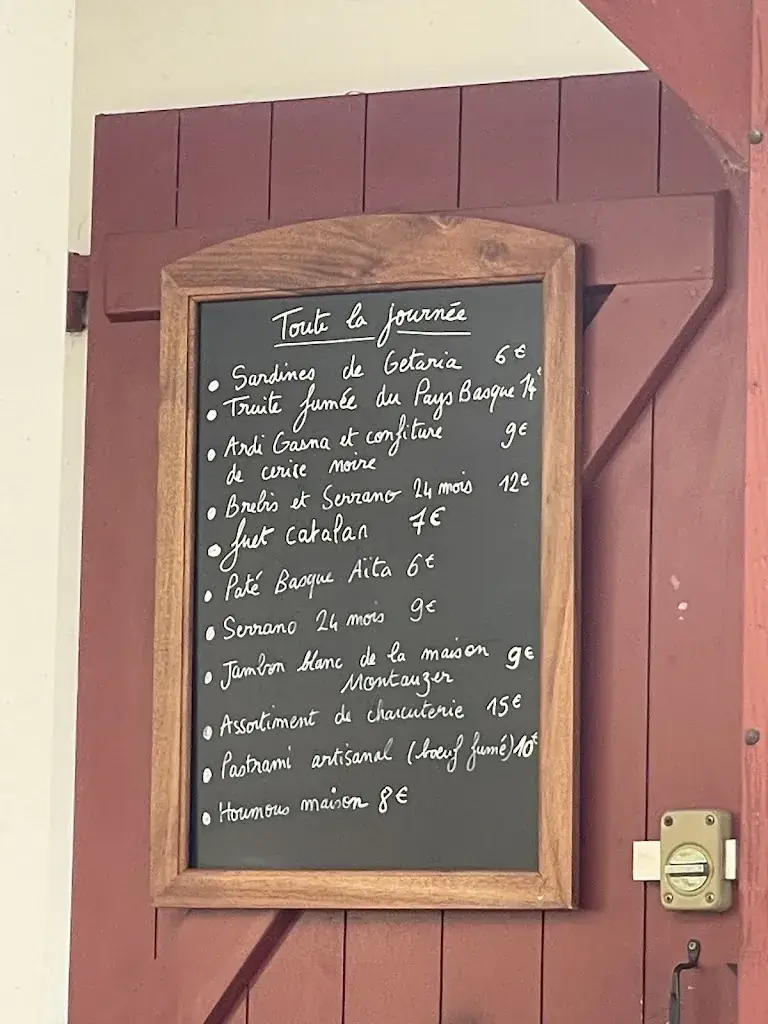 Toute la journée
• Sardines de Getaria 6€
• Truite fumée du Pays Basque 14€
• Ardi Gasna et confiture 9€
de cerise noire
• Brebis et Serrano 24 mois 12€
• fuet catalan 7€
• Paté Basque Aïta 6€
• Serrano 24 mois 9€
• Jambon blanc de la maison 9€
Montauzer
• Assortiment de charcuterie 15€
• Pastrami artisanal (boeuf fumé) 10€
• Houmous maison 8€